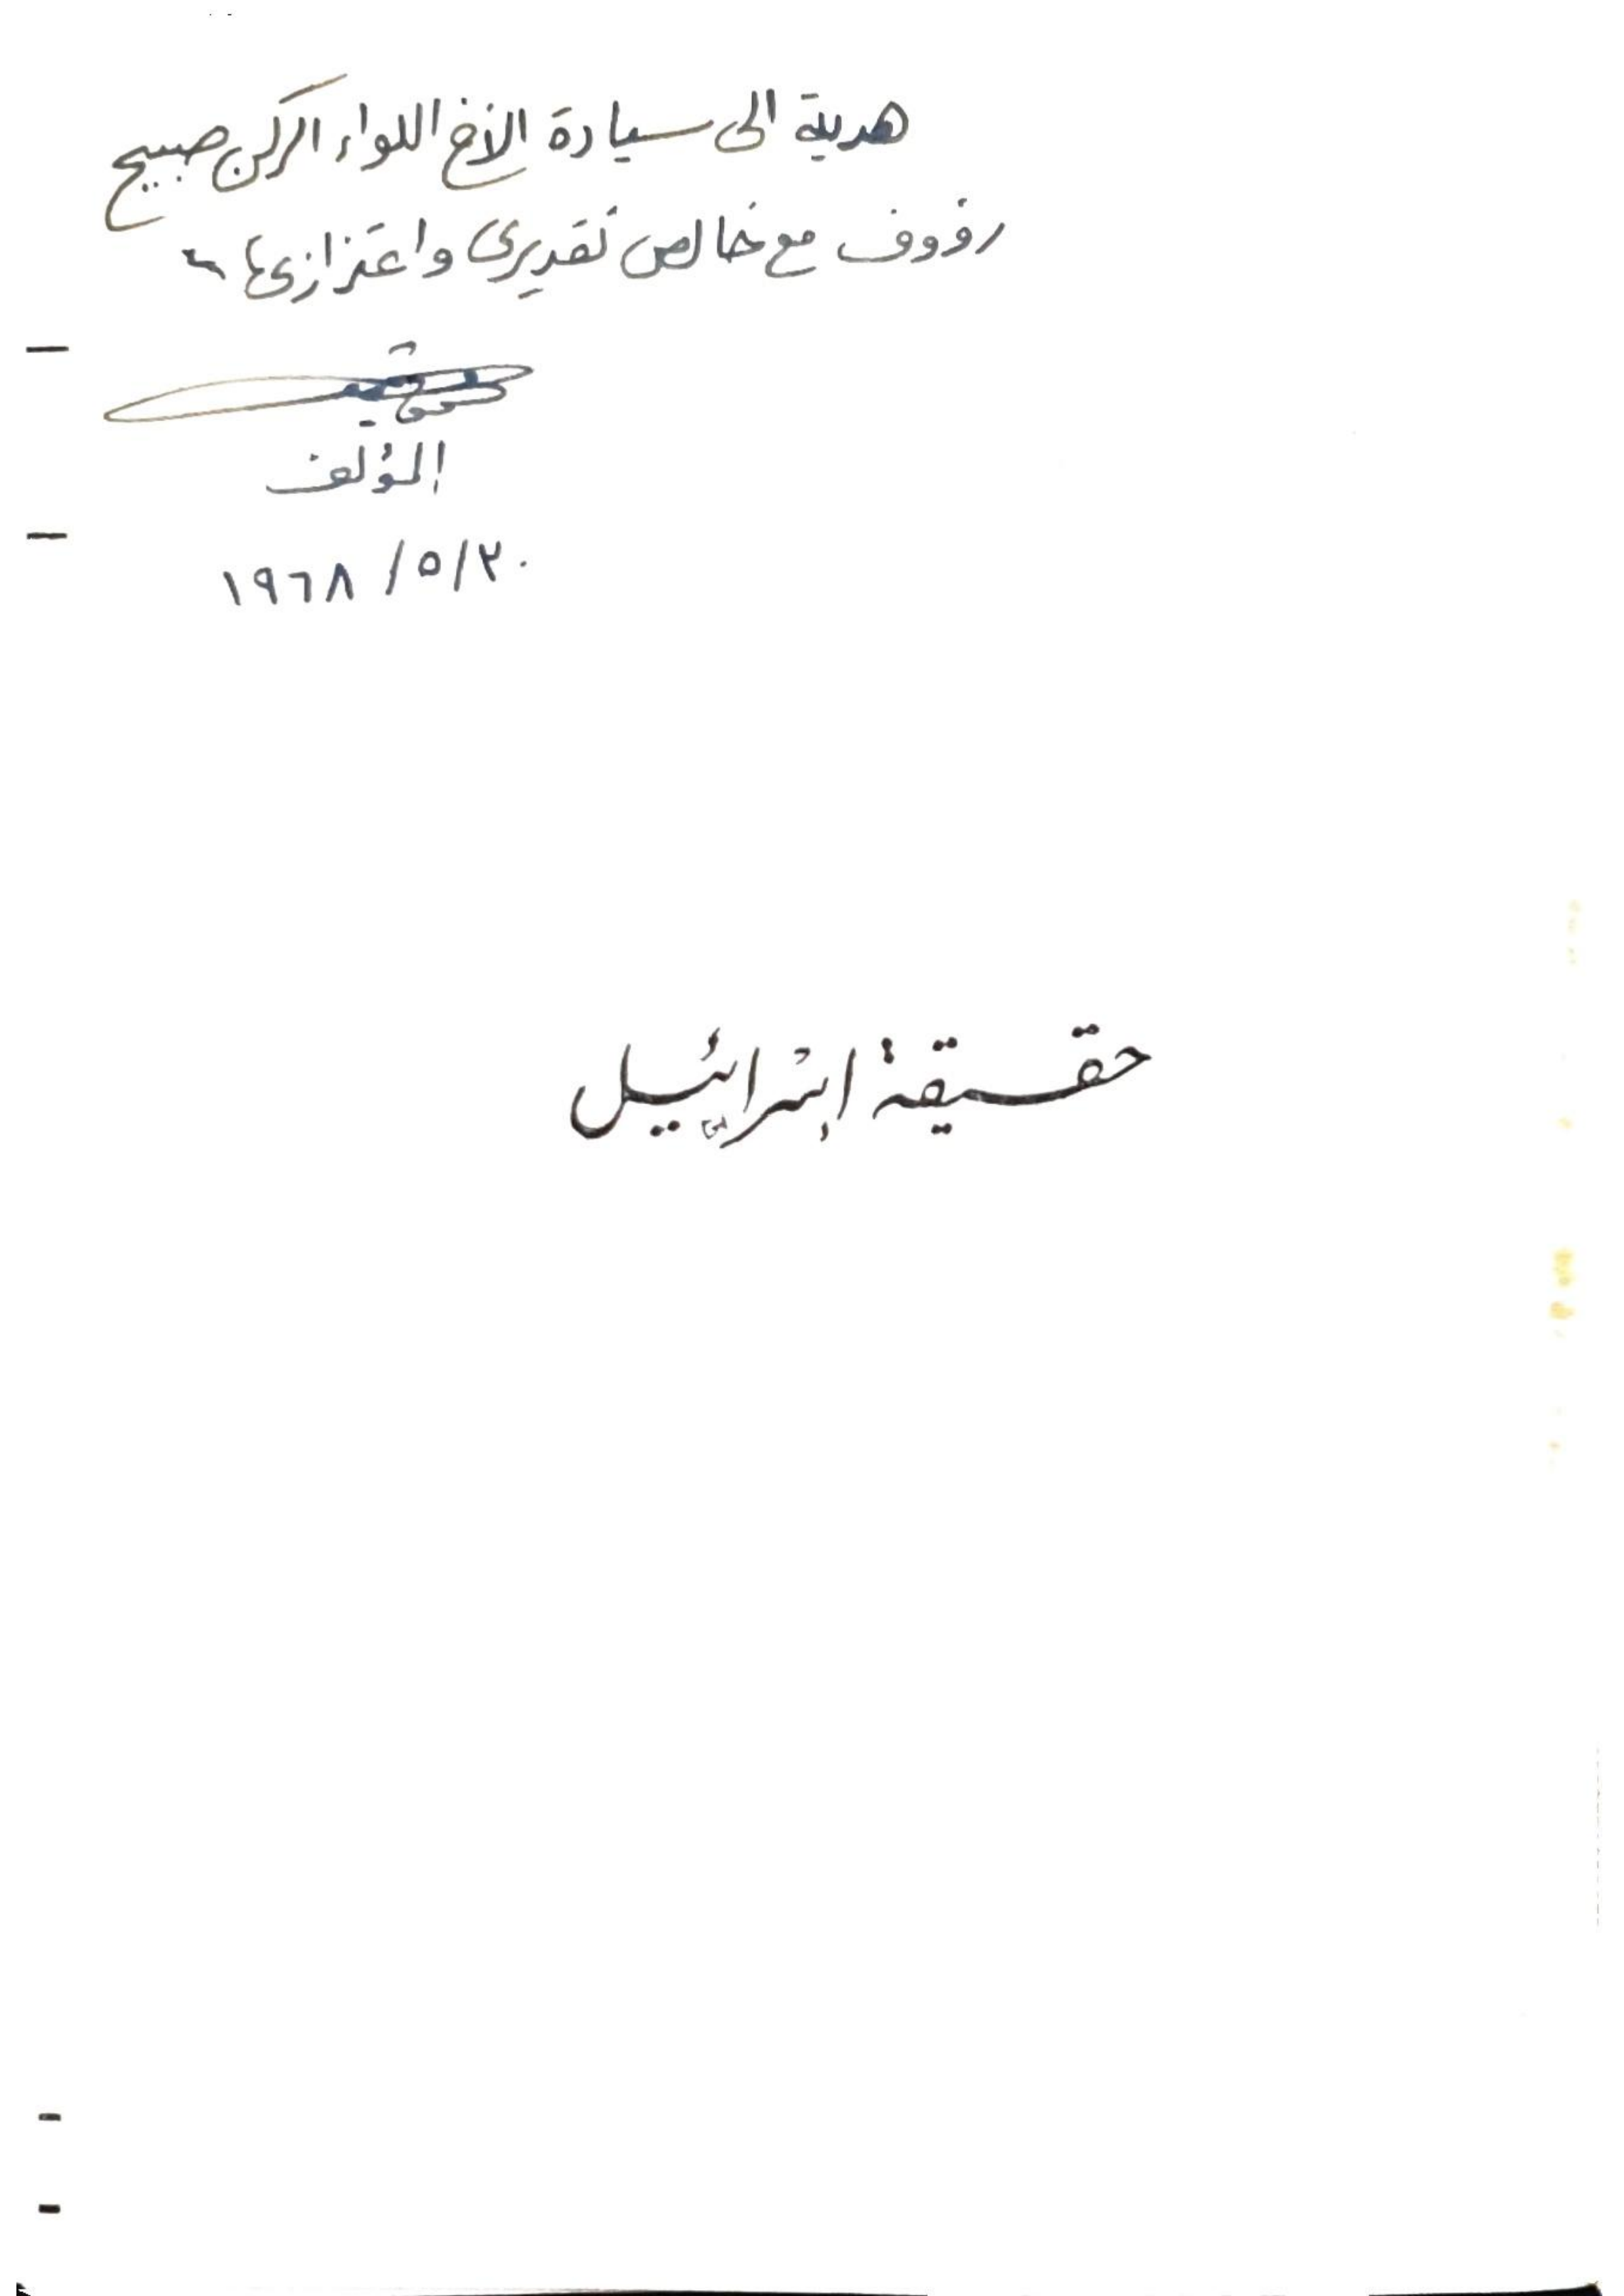 هدية الى سيادة الأخ اللواء الركن صبيح
رؤوف مع خالص تقديري واعتزازي
المؤلف
١٩٦٨/٥/٢٠
حقيقة إسرائيل